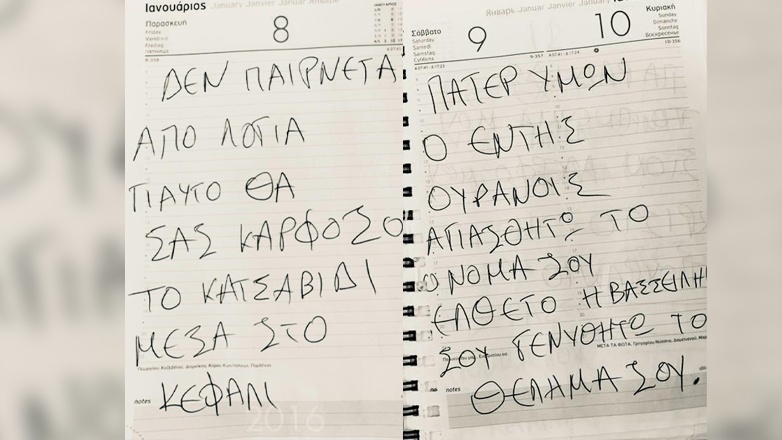 Ιανουάριος January Janvier Januar Январь
Παρασκευή
Friday
Vendredi
Freitag
8
ΔΕΝ ΠΑΙΡΝΕΤΑ
ΑΠΟ ΛΟΓΙΑ
ΓΙΑΥΤΟ ΘΑ
ΣΑΣ ΚΑΡΦΟΣΟ
ΤΟ ΚΑΤΣΑΒΙΔΙ
ΜΕΣΑ ΣΤΟ
ΚΕΦΑΛΙ
notes
2016
Январь Januar Janvier January
Σάββατο
Saturday
Samedi
Samstag
9
10
Κυριακή
Sunday
Dimanche
Sonntag
Воскресенье
ΠΑΤΕΡ ΥΜΩΝ
Ο ΕΝΤΗΣ
ΟΥΡΑΝΟΙΣ
ΑΓΙΑΣΘΗΤΩ ΤΟ
ΟΝΟΜΑ ΣΟΥ
ΕΛΘΕΤΟ Η ΒΑΣΣΕΙΛΗ
ΣΟΥ ΓΕΝΥΘΗΤΩ ΤΟ
ΘΕΛΑΜΑ ΣΟΥ.
notes